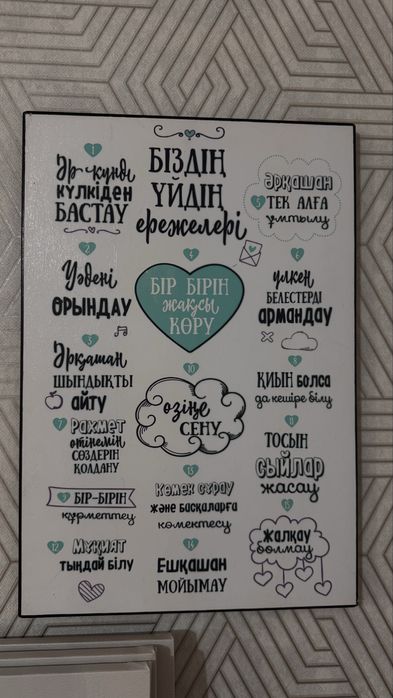 БІЗДІҢ
ҮЙДІҢ
ережелері
1
Әр күнді
күлкіден
БАСТАУ
2
Уәдені
ОРЫНДАУ
3
Әрқашан
ШЫНДЫҚТЫ
айту
4
БІР БІРІН
жақсы
КӨРУ
5
Әрқашан
ТЕК АЛҒА
ұмтылу
6
үлкен
БЕЛЕСТЕРДІ
армандау
7
Рахмет
өтінемін
СӨЗДЕРІН
ҚОЛДАНУ
8
ҚИЫН болса
да кешіре білу
9
БІР-БІРІН
құрметтеу
10
өзіңе
СЕНУ
11
ТОСЫН
сыйлар
жасау
12
Мұқият
тыңдай білу
13
Көмек сұрау
және басқаларға
көмектесу
14
Ешқашан
МОЙЫМАУ
15
жалқау
болмау